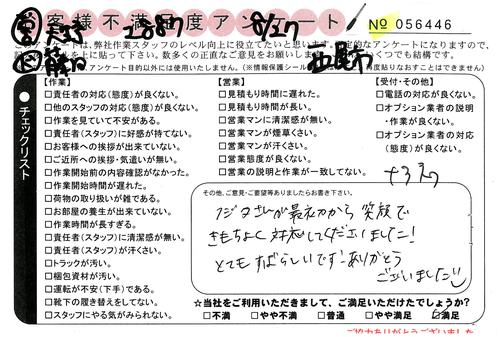 お客様不満足度アンケート
№ 056446
8/27
このアンケートは、弊社作業スタッフのレベル向上に役立てたいと思います。
チェックリスト
【作業】
□責任者の対応(態度)が良くない。
□他のスタッフの対応(態度)が良くない。
□作業を見ていて不安がある。
□責任者(スタッフ)に好感が持てない。
□お客様への挨拶が出来ていない。
□ご近所への挨拶・気遣いが無い。
□作業開始前の内容確認がなかった。
□作業開始時間が遅れた。
□荷物の取り扱いが雑である。
□お部屋の養生が出来ていない。
□作業時間が長すぎる。
□責任者(スタッフ)に清潔感が無い。
□責任者(スタッフ)が汗くさい。
□トラックが汚い。
□梱包資材が汚い。
□運転が不安(下手)である。
□靴下の履き替えをしてない。
□スタッフにやる気がみられない。
【営業】
□見積もり時間に遅れた。
□見積もり時間が長い。
□営業マンに清潔感が無い。
□営業マンが煙草くさい。
□営業マンが汗くさい。
□営業態度が良くない。
□営業の説明と作業が一致してない。
【受付・その他】
□電話の対応が良くない。
□オプション業者の説明
・作業が良くない。
□オプション業者の対応
(態度)が良くない。
その他、ご意見・ご要望等ありましたらお書き下さい。
フジタさんが最初から笑顔で
きもちよく対応してくださいました!
とてもすばらしいです!ありがとう
ございました
☆当社をご利用いただきまして、ご満足いただけたでしょうか?
□不満 □やや不満 □普通 □やや満足 □満足
ご協力ありがとうございました